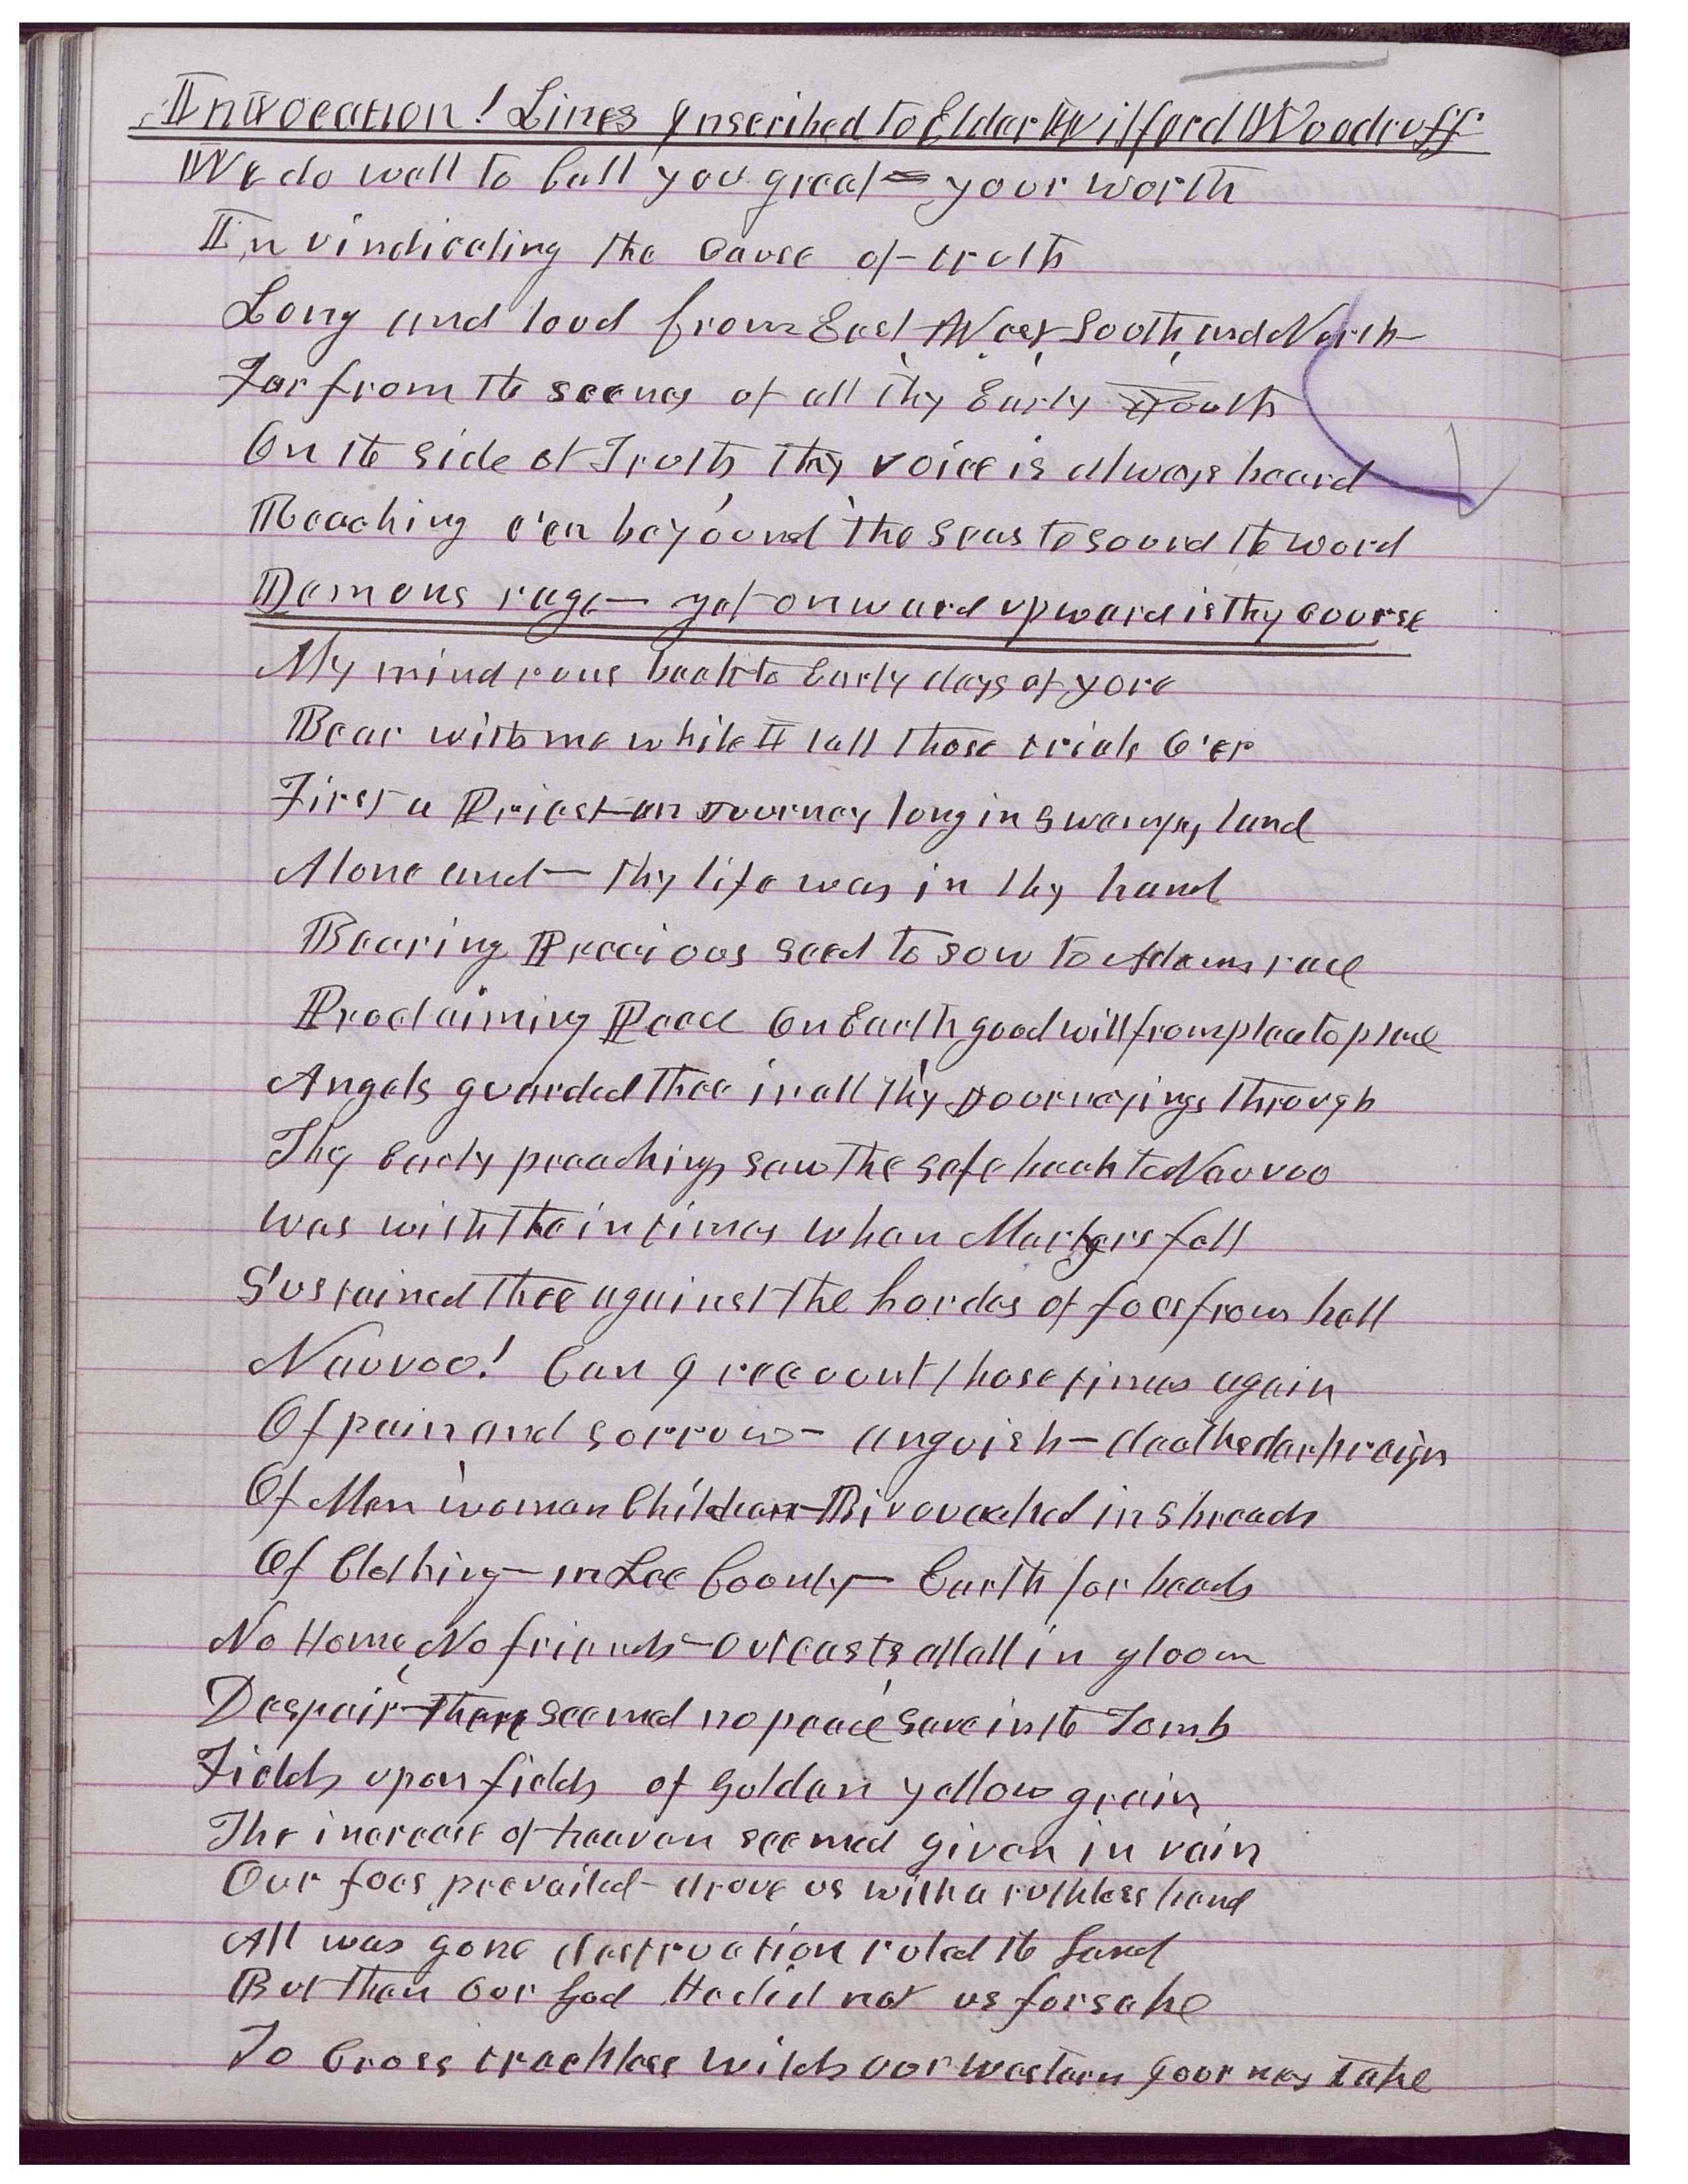 Invocation! Lines Inscribed to Elder Wilford Woodruff
We do well to Call you great = your worth
In vindicating the Cause of truth
Long and loud from East, West, South, and North
Far from the scenes of all thy Early Youth
On the side of Truth thy voice is always heard
Reaching e'en beyound the Seas to sound the word
Demons rage — yet onward upward is thy course
My mind runs back to Early days of yore
Bear with me while I tell those trials O'er
First a Priest on Journey long in swampy land
Alone and — thy life was in thy hand
Bearing Precious Seed to sow to Adams race
Proclaiming Peace On Earth good will from place to place
Angels guarded thee in all thy Journeyings through
Thy Early preachings saw the safe back to Nauvoo
Was with the in times when Martyrs fell
Sustained thee against the hordes of foes from hell
Nauvoo! Can I recount those times again
Of pain and sorrow - anguish - deaths dark reign
Of Men women Children - Bivouacked in Shreads
Of Clothing - in Lee County - Earth for beads
No Home, No friends - outcasts all all in gloom
Despair - there seemed no peace save in the Tomb
Fields upon fields of Golden yellow grain
The increase of heaven seemed given in vain
Our foes prevailed - drove us with a ruthless hand
All was gone destruction ruled the Land
But then Our God He did not us forsake
To Cross trackless wilds our western Journey take